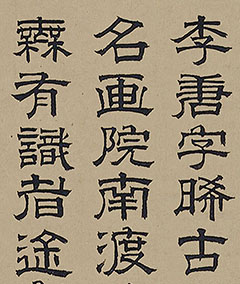 李唐字晞古
名画院南渡
無有識者途